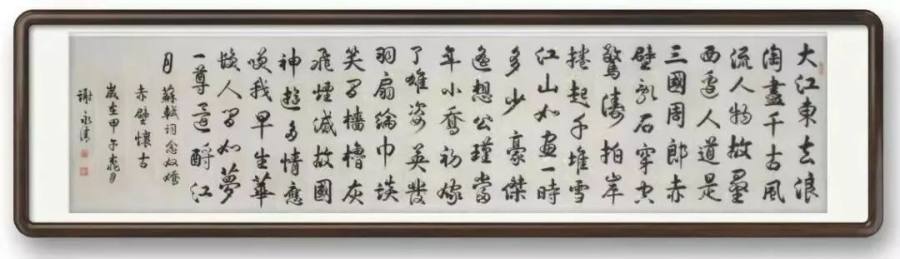 大江東去浪
淘盡千古風
流人物故壘
西邊人道是
三國周郎赤
壁亂石穿空
驚濤拍岸
捲起千堆雪
江山如畫一時
多少豪傑
遥想公瑾當
年小喬初嫁
了雄姿英發
羽扇綸巾談
笑間檣櫓灰
飛煙滅故國
神遊多情應
笑我早生華
髮人間如夢
一尊還酹江
月
蘇軾詞念奴嬌
赤壁懷古
歲在甲午秋月
謝永濤